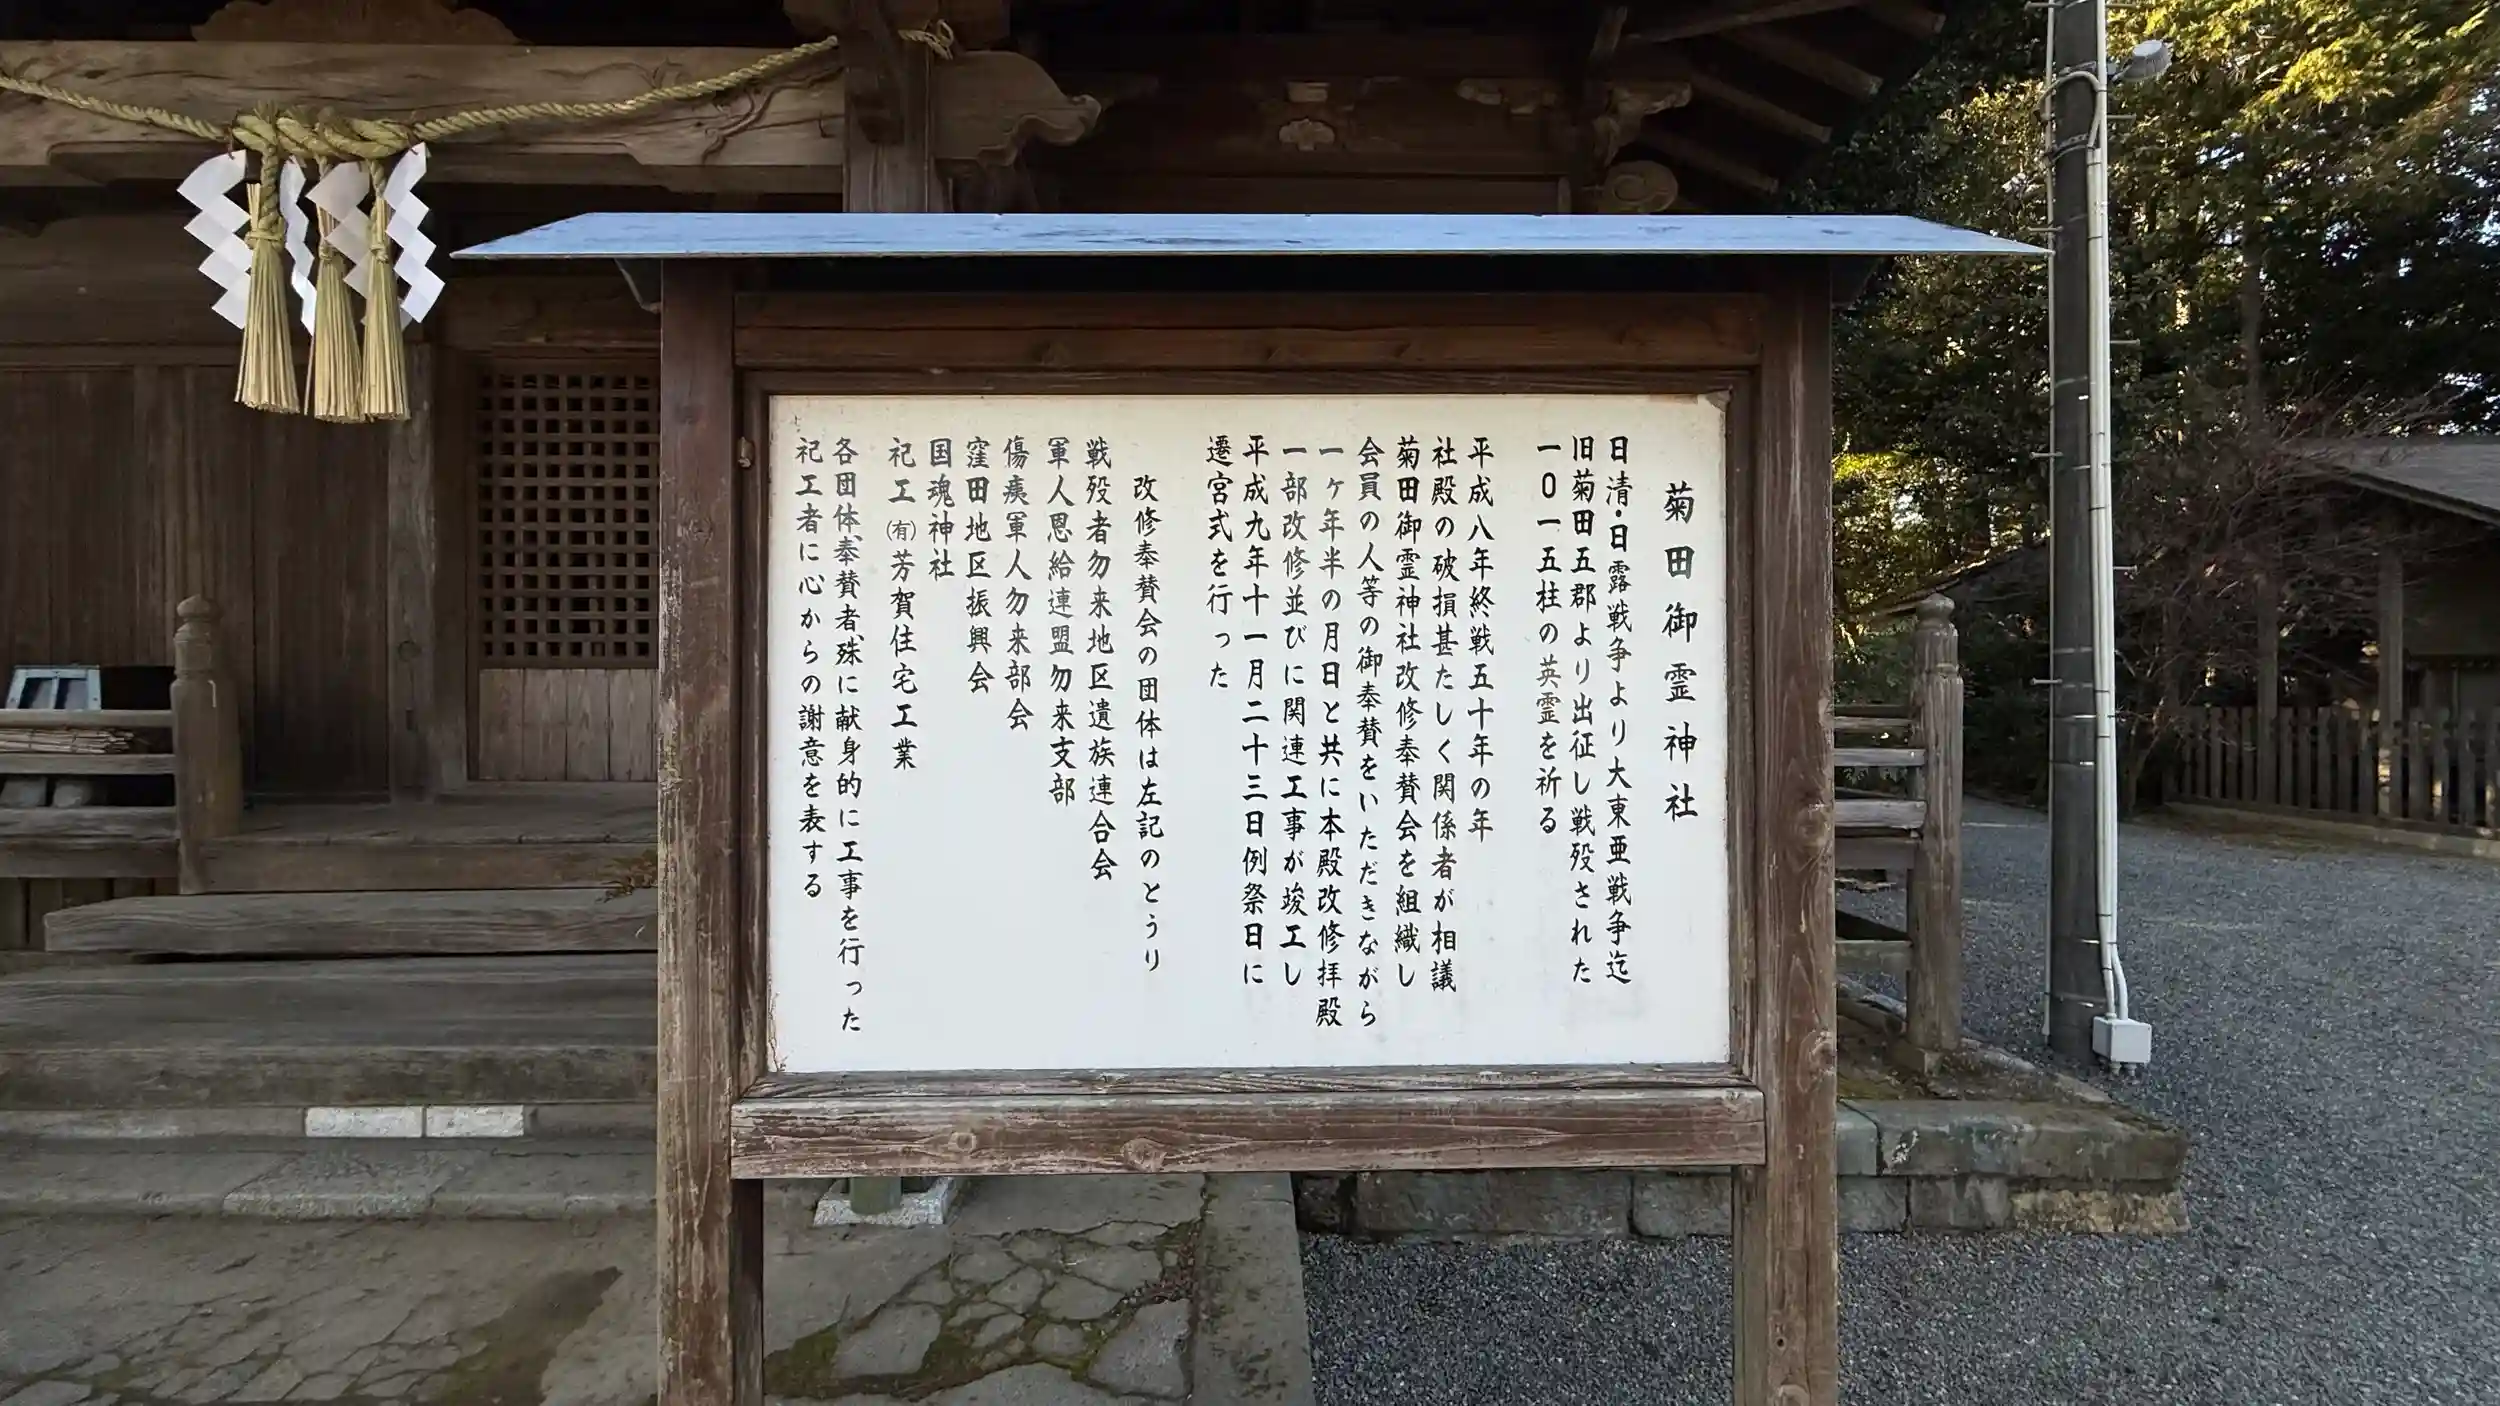 菊田御霊神社
日清・日露戦争より大東亜戦争迄
旧菊田五郡より出征し戦歿された
一０一五柱の英霊を祈る
平成八年終戦五十年の年
社殿の破損甚たしく関係者が相議
菊田御霊神社改修奉賛会を組織し
会員の人等の御奉賛をいただきながら
一ヶ年半の月日と共に本殿改修拝殿
一部改修並びに関連工事が竣工し
平成九年十一月二十三日例祭日に
遷宮式を行った
改修奉賛会の団体は左記のとうり
戦歿者勿来地区遺族連合会
軍人恩給連盟勿来支部
傷痍軍人勿来部会
窪田地区振興会
国魂神社
祀工㈲芳賀住宅工業
各団体、奉賛者、殊に献身的に工事を行った
祀工者に心からの謝意を表する